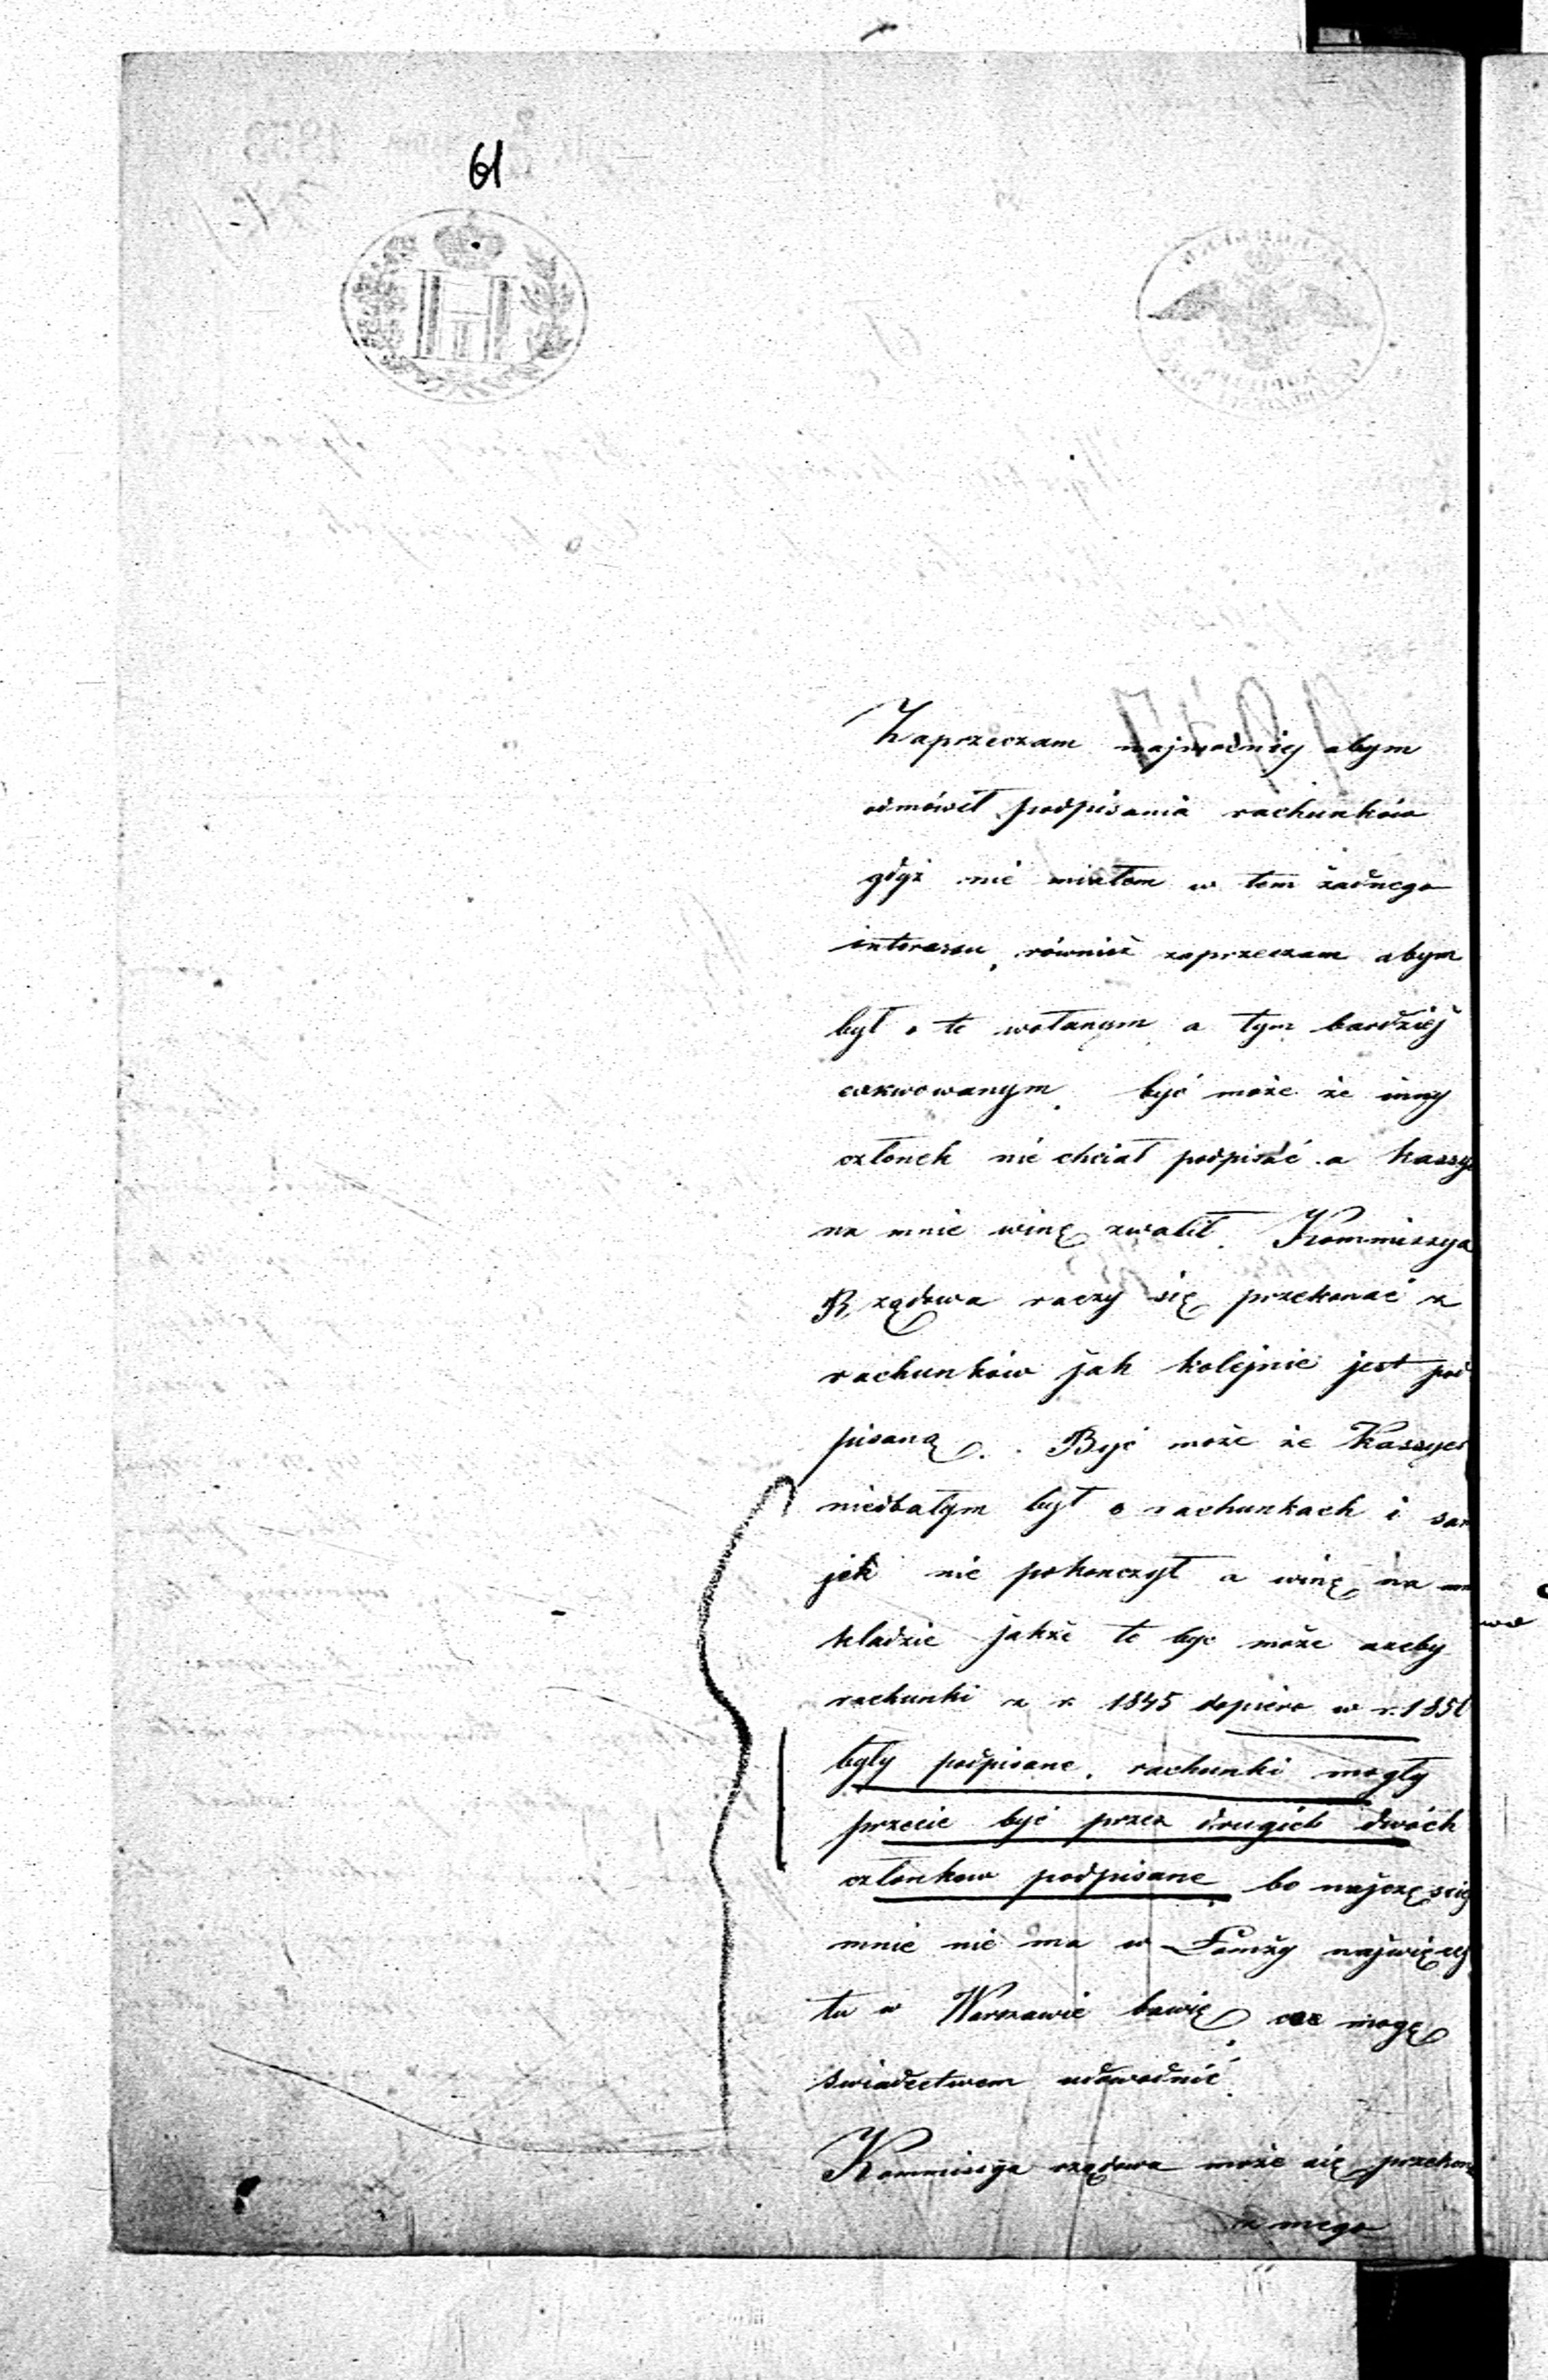 61
Zaprzeczam najmocniej abym
odmówił podpisania rachunków
gdyż nie miałem w tem żadnego
interessu, również zaprzeczam abym
był o to wołanym a tym bardziej
exekwowanym. być może że inny
członek nie chciał podpisać a kassy
na mnie winę zwalił. Kommissya
Rządowa raczy się przekonać z
rachunków jak kolejnie jest pod
pisaną. Być może że Kassyer
niedbałym był o rachunkach i sam
jeh nie pokonczył a winę na
kladzie jakże to byc może azeby
rachunki z r 1845 dopiero w r. 1850
były podpisane. rachunki mogły
przecie być przez drugich dwóch
członkow podpisane bo najczęsciej
mnie nie ma w Łomży najwięcej
tu w Warszawie bawię, co mogę
swiadectwem udowodnić.
Kommissya rządowa może się przekona
z mego